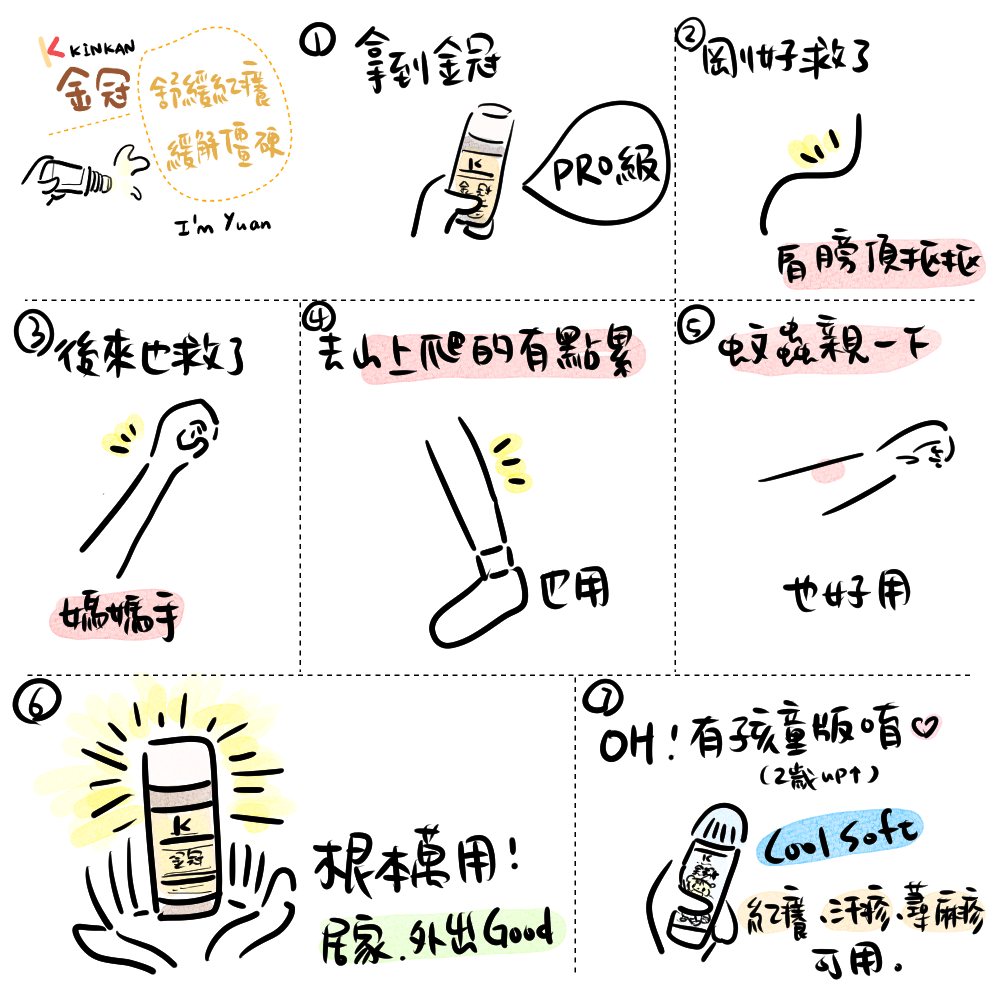 KINKAN
金冠
舒緩紅癢
緩解僵硬
I'm Yuan
① 拿到金冠
K
PRO級
② 剛好救了
肩膀頂摳摳
③ 後來也救了
媽媽手
④ 去山上爬的有點累
也用
⑤ 蚊蟲親一下
也好用
⑥
K
金冠
根本萬用!
居家、外出Good
⑦
OH!有孩童版唷♡
(2歲up↑)
K
Cool Soft
紅癢、汗疹、蕁麻疹
可用.